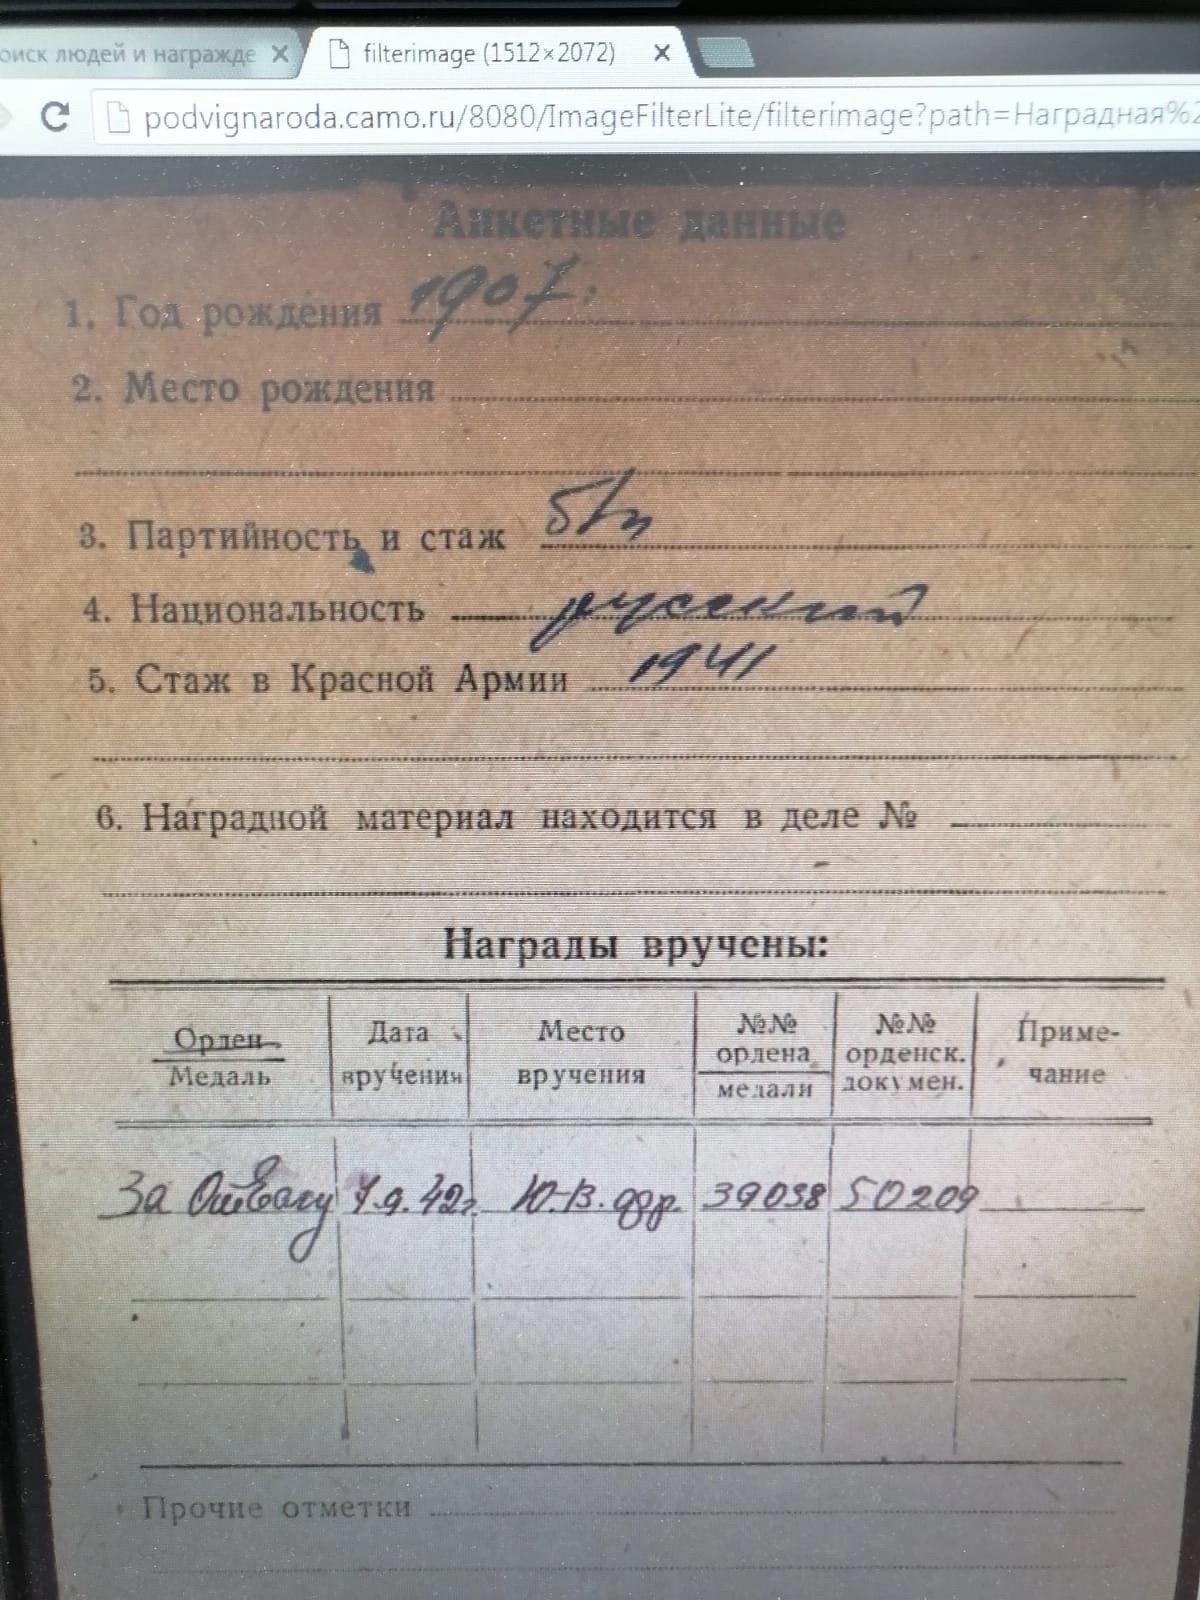 оиск людей и награжде × filterimage (1512×2072) ×
podvignaroda.camo.ru/8080/ImageFilterLite/filterimage?path=Наградная%2
Анкетные данные
1. Год рождения 1907.
2. Место рождения
3. Партийность и стаж б/п
4. Национальность русский
5. Стаж в Красной Армии 1941
6. Наградной материал находится в деле №
Награды вручены:
Орден Медаль
Дата вручения
Место вручения
№№ ордена медали
№№ орденск. докумен.
Приме-чание
За Отвагу 7.9.42г. Ю-В. фр. 39038 50209
Прочие отметки